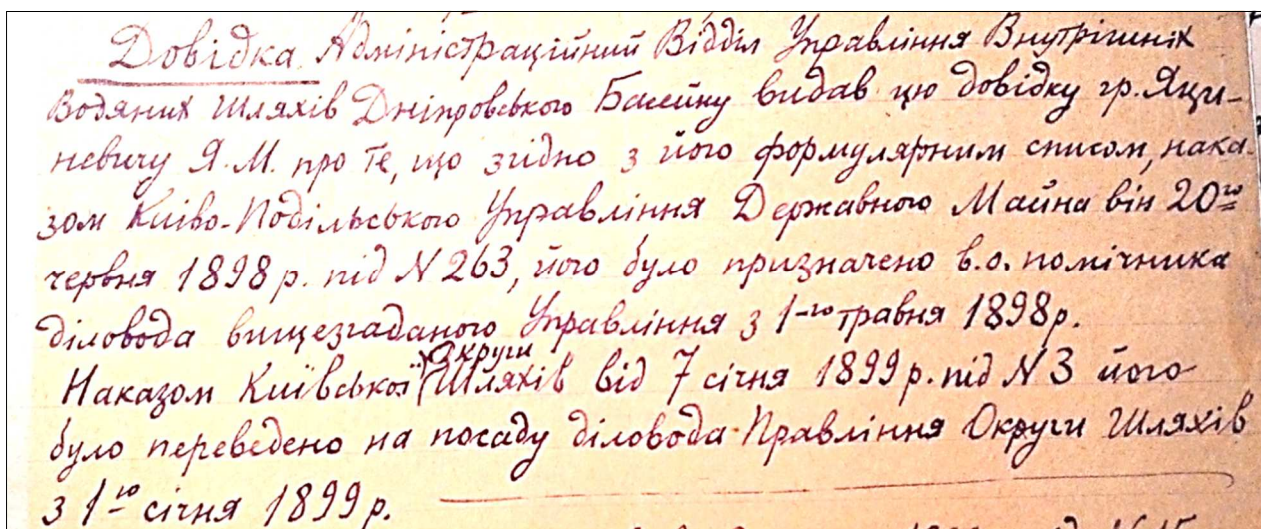 Довідка. Адміністраційний Відділ Управління Внутрішніх
Водяних Шляхів Дніпровського Басейну видав цю довідку гр. Яци-
невичу Я.М. про те, що згідно з його формулярним списом, нака-
зом Київо-Подільського Управління Державного Майна він 20го
червня 1898 р. під N 263, його було призначено в.о. помічника
діловода вищезгаданого Управління з 1-го травня 1898 р.
Наказом Київської Округи Шляхів від 7 січня 1899 р. під N 3 його
було переведено на посаду діловода Правління Округи Шляхів
з 1го січня 1899 р.